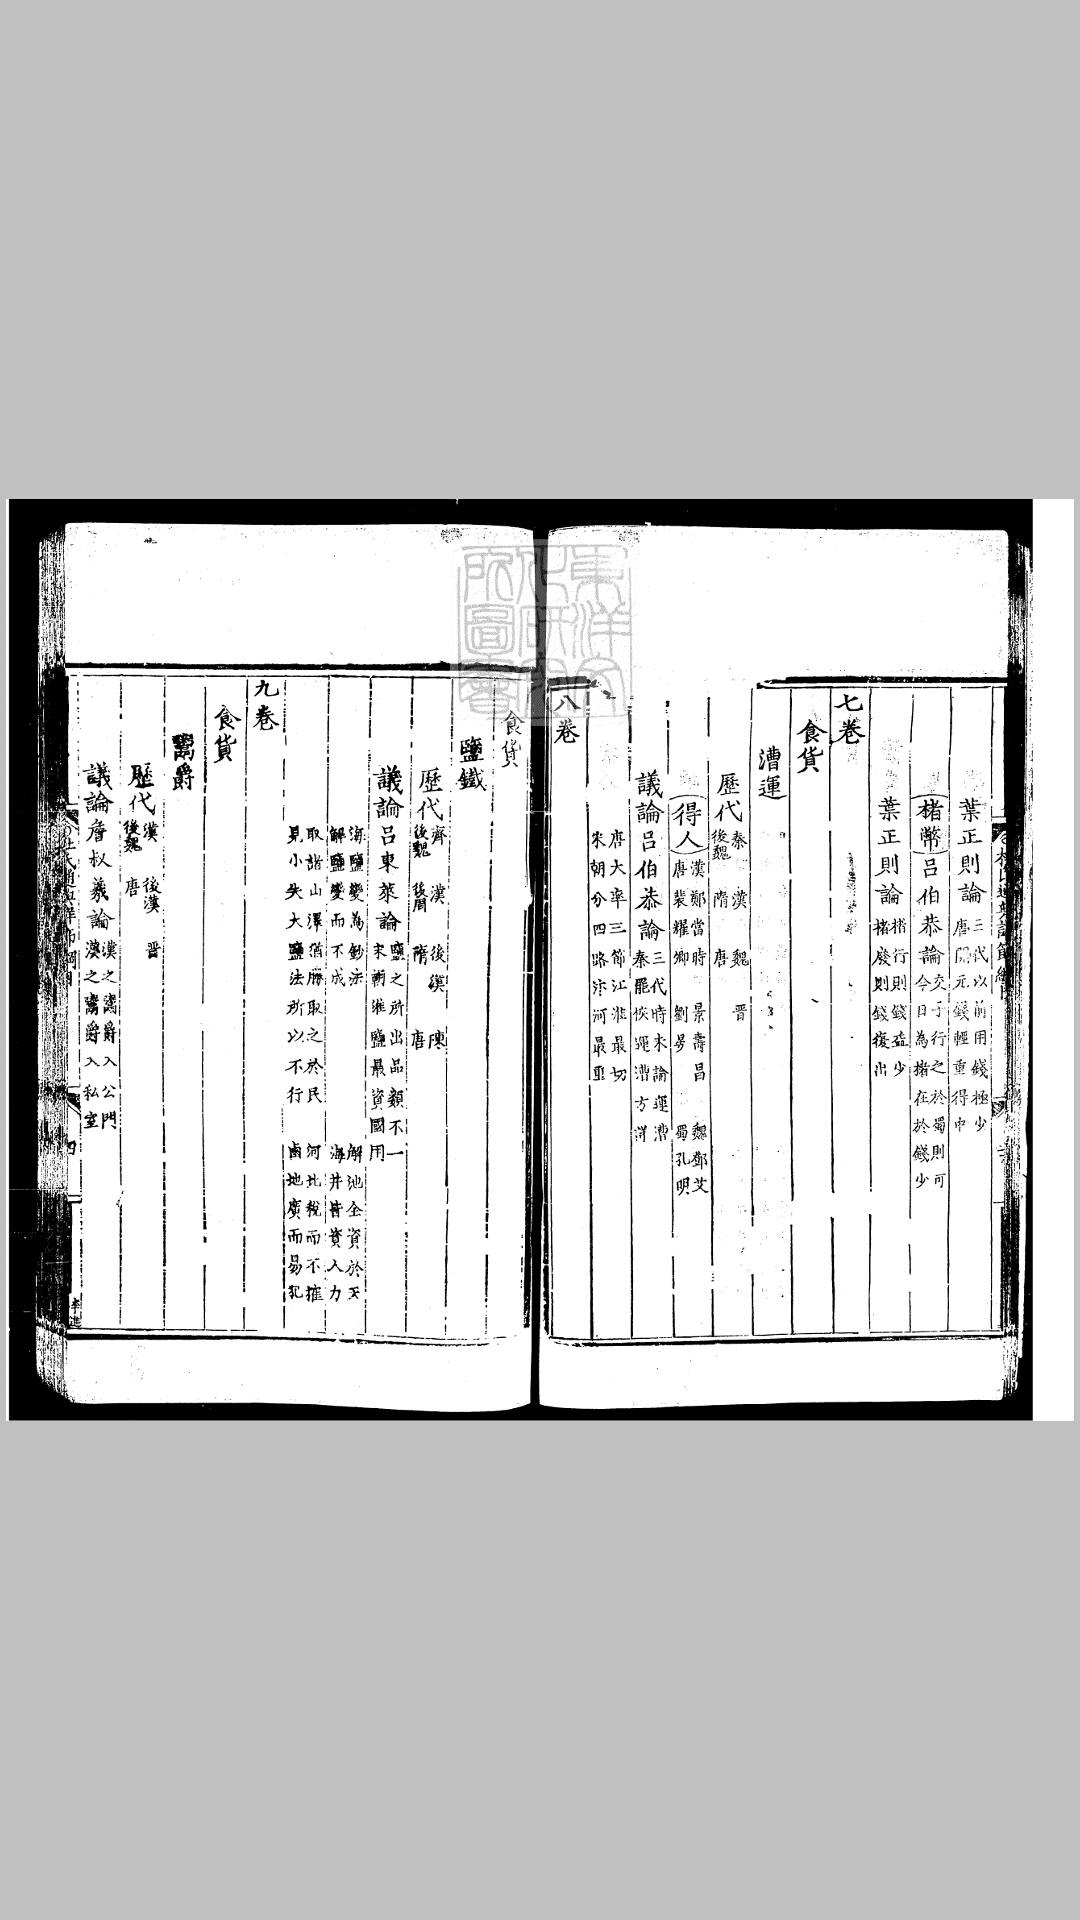 葉正則論 三代以前用錢極少 唐開元錢輕重得中
楮幣 呂伯恭論 交子行之於蜀則可 今日為楮在於錢少
葉正則論 楮行則錢益少 楮廢則錢復出
七卷
食貨
漕運
歷代 秦 漢 魏 晉 後魏 隋 唐
得人 漢鄭當時 景壽昌 魏鄧艾 唐裴耀卿 劉晏 蜀孔明
議論 呂伯恭論 三代時未論運漕 秦罷侯 漕方詳
唐大率三節江淮最切
宋朝分四路汴河最重
八卷
食貨
鹽鐵
歷代 齊 漢 後漢 陳 後魏 後周 隋 唐
議論 呂東萊論 鹽之所出品類不一 宋朝淮鹽最資國用
海鹽變為鈔法 解池全資於天
解鹽變而不成 海井皆資人力
取諸山澤猶勝取之於民 河北稅而不榷
見小失大鹽法所以不行 鹵地廣而易犯
九卷
食貨
鬻爵
歷代 漢 後漢 晉 後魏 唐
議論 詹叔羲論 漢之鬻爵入公門 漢之鬻爵入私室
四